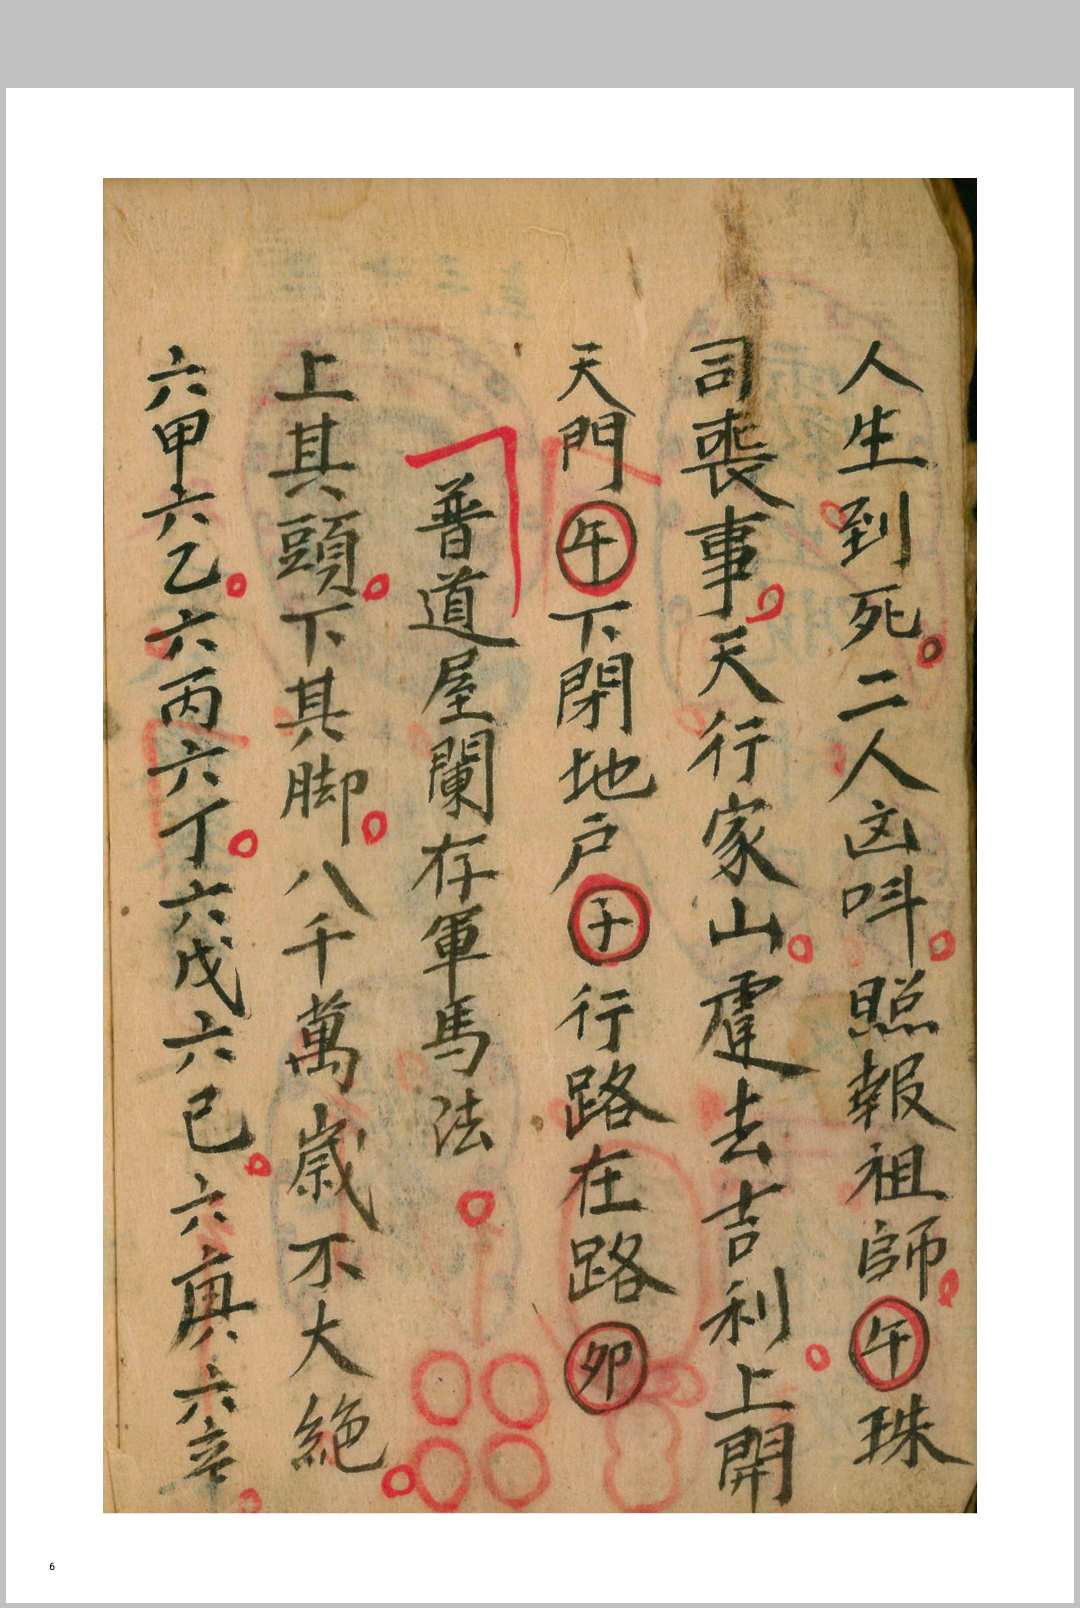 人生到死。二人凶呌。照報祖師。午珠
司喪事。天行家山。霳去吉利。上開
天門午下閉地戶子行路在路卯
普道屋闌存軍馬法
上其頭。下其脚。八千萬歲不大絕。
六甲六乙。六丙六丁。六戊六己。六庚六辛。
6